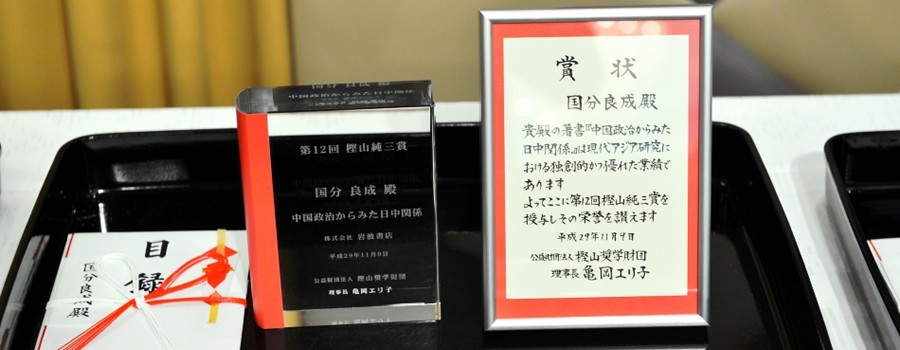 目録
国分良成殿
第12回 樫山純三賞
国分 良成 殿
中国政治からみた日中関係
株式会社 岩波書店
平成29年11月9日
公益財団法人 樫山奨学財団
理事長 亀岡エリ子
賞状
国分良成殿
貴殿の著書『中国政治からみた
日中関係』は現代アジア研究に
おける独創的かつ優れた業績で
あります
よってここに第12回樫山純三賞を
授与しその栄誉を讃えます
平成29年11月9日
公益財団法人 樫山奨学財団
理事長 亀岡エリ子